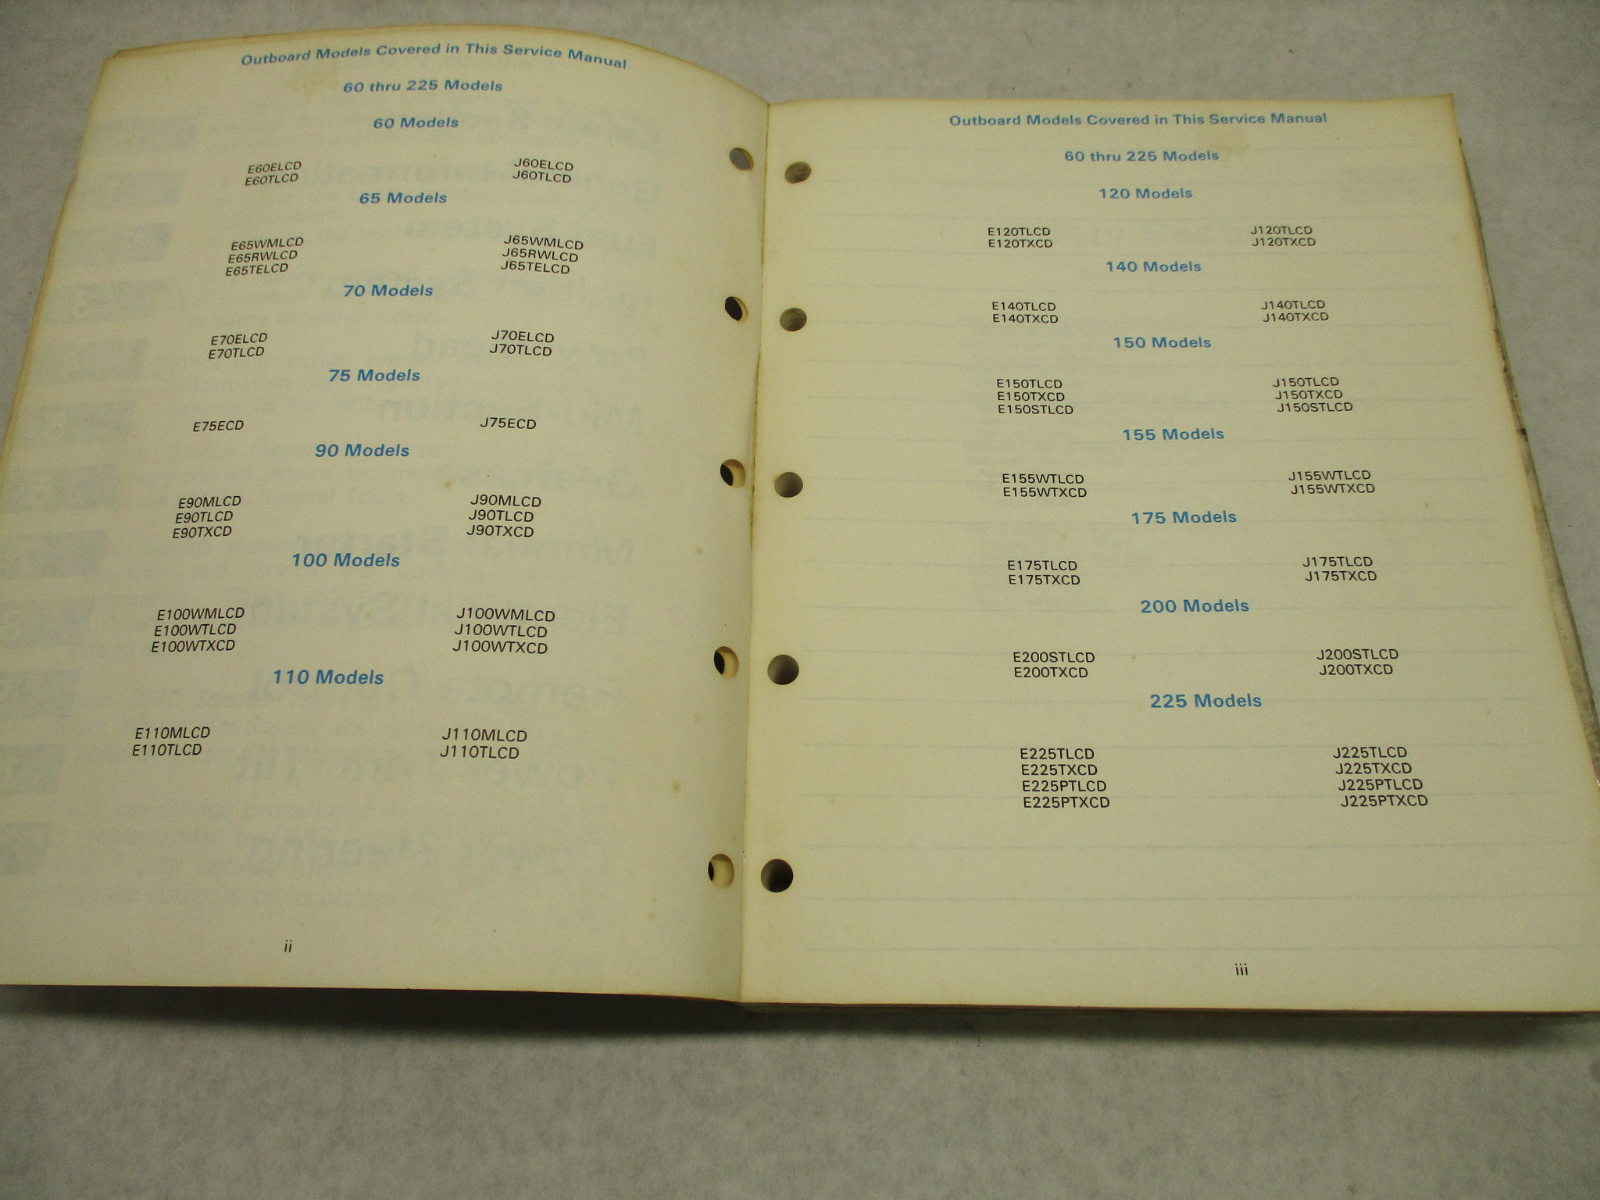 Outboard Models Covered in This Service Manual
60 thru 225 Models
60 Models
E60ELCD J60ELCD
E60TLCD J60TLCD
65 Models
E65WMLCD J65WMLCD
E65RWLCD J65RWLCD
E65TELCD J65TELCD
70 Models
E70ELCD J70ELCD
E70TLCD J70TLCD
75 Models
E75ECD J75ECD
90 Models
E90MLCD J90MLCD
E90TLCD J90TLCD
E90TXCD J90TXCD
100 Models
E100WMLCD J100WMLCD
E100WTLCD J100WTLCD
E100WTXCD J100WTXCD
110 Models
E110MLCD J110MLCD
E110TLCD J110TLCD
ii
Outboard Models Covered in This Service Manual
60 thru 225 Models
120 Models
E120TLCD J120TLCD
E120TXCD J120TXCD
140 Models
E140TLCD J140TLCD
E140TXCD J140TXCD
150 Models
E150TLCD J150TLCD
E150TXCD J150TXCD
E150STLCD J150STLCD
155 Models
E155WTLCD J155WTLCD
E155WTXCD J155WTXCD
175 Models
E175TLCD J175TLCD
E175TXCD J175TXCD
200 Models
E200STLCD J200STLCD
E200TXCD J200TXCD
225 Models
E225TLCD J225TLCD
E225TXCD J225TXCD
E225PTLCD J225PTLCD
E225PTXCD J225PTXCD
iii